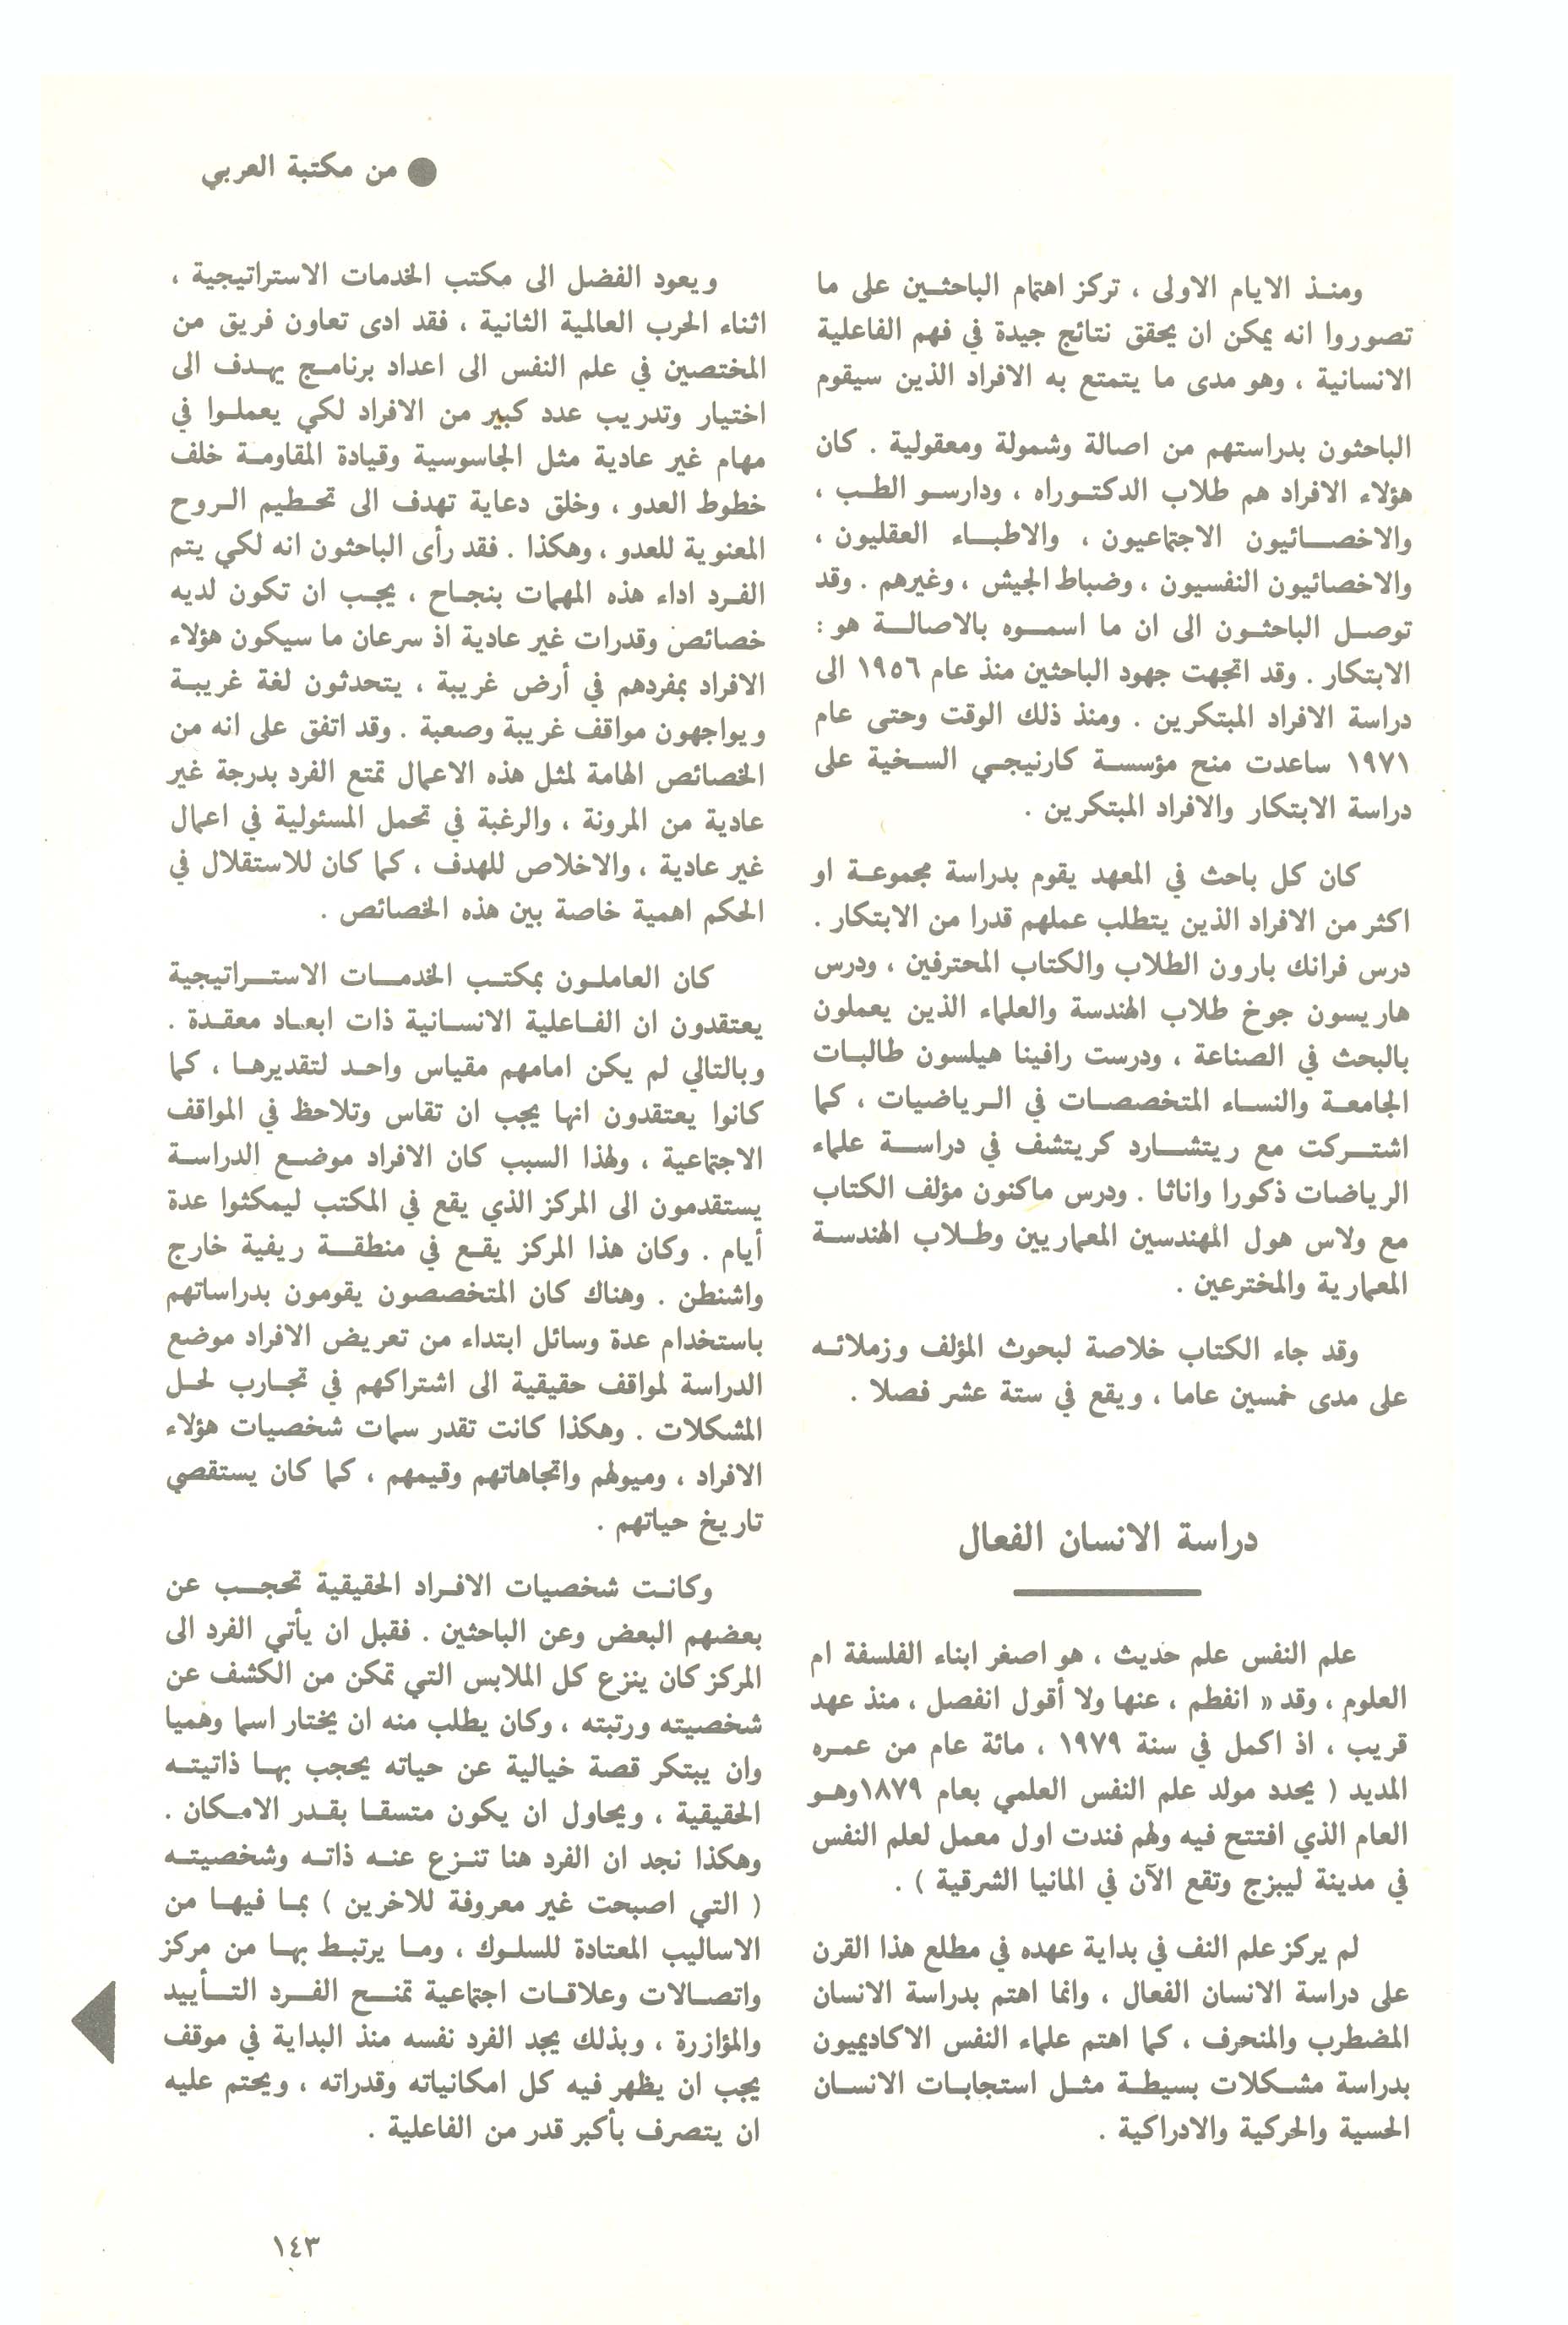 ● من مكتبة العربي
ومنذ الايام الاولى ، تركز اهتمام الباحثين على ما
تصوروا انه يمكن ان يحقق نتائج جيدة في فهم الفاعلية
الانسانية ، وهو مدى ما يتمتع به الافراد الذين سيقوم
الباحثون بدراستهم من اصالة وشمولة ومعقولية . كان
هؤلاء الافراد هم طلاب الدكتوراه ، ودارسو الطب ،
والاخصائيون الاجتماعيون ، والاطباء العقليون ،
والاخصائيون النفسيون ، وضباط الجيش ، وغيرهم . وقد
توصل الباحثون الى ان ما اسموه بالاصالة هو :
الابتكار . وقد اتجهت جهود الباحثين منذ عام ١٩٥٦ الى
دراسة الافراد المبتكرين . ومنذ ذلك الوقت وحتى عام
١٩٧١ ساعدت منح مؤسسة كارنيجي السخية على
دراسة الابتكار والافراد المبتكرين .
كان كل باحث في المعهد يقوم بدراسة مجموعة او
اكثر من الافراد الذين يتطلب عملهم قدرا من الابتكار .
درس فرانك بارون الطلاب والكتاب المحترفين ، ودرس
هاريسون جوخ طلاب الهندسة والعلماء الذين يعملون
بالبحث في الصناعة ، ودرست رافينا هيلسون طالبات
الجامعة والنساء المتخصصات في الرياضيات ، كما
اشتركت مع ريتشارد كريتشف في دراسة علماء
الرياضات ذكورا واناثا . ودرس ماكنون مؤلف الكتاب
مع ولاس هول المهندسين المعماريين وطلاب الهندسة
المعمارية والمخترعين .
وقد جاء الكتاب خلاصة لبحوث المؤلف وزملائه
على مدى خمسين عاما ، ويقع في ستة عشر فصلا .
دراسة الانسان الفعال
علم النفس علم حديث ، هو اصغر ابناء الفلسفة ام
العلوم ، وقد « انفطم ، عنها ولا أقول انفصل ، منذ عهد
قريب ، اذ اكمل في سنة ١٩٧٩ ، مائة عام من عمره
المديد ( يحدد مولد علم النفس العلمي بعام ١٨٧٩وهو
العام الذي افتتح فيه ولهم فندت اول معمل لعلم النفس
في مدينة ليبزج وتقع الآن في المانيا الشرقية ) .
لم يركز علم النف في بداية عهده في مطلع هذا القرن
على دراسة الانسان الفعال ، وانما اهتم بدراسة الانسان
المضطرب والمنحرف ، كما اهتم علماء النفس الاكاديميون
بدراسة مشكلات بسيطة مثل استجابات الانسان
الحسية والحركية والادراكية .
ويعود الفضل الى مكتب الخدمات الاستراتيجية ،
اثناء الحرب العالمية الثانية ، فقد ادى تعاون فريق من
المختصين في علم النفس الى اعداد برنامج يهدف الى
اختيار وتدريب عدد كبير من الافراد لكي يعملوا في
مهام غير عادية مثل الجاسوسية وقيادة المقاومة خلف
خطوط العدو ، وخلق دعاية تهدف الى تحطيم الروح
المعنوية للعدو ، وهكذا . فقد رأى الباحثون انه لكي يتم
الفرد اداء هذه المهمات بنجاح ، يجب ان تكون لديه
خصائص وقدرات غير عادية اذ سرعان ما سيكون هؤلاء
الافراد بمفردهم في أرض غريبة ، يتحدثون لغة غريبة
ويواجهون مواقف غريبة وصعبة . وقد اتفق على انه من
الخصائص الهامة لمثل هذه الاعمال تمتع الفرد بدرجة غير
عادية من المرونة ، والرغبة في تحمل المسئولية في اعمال
غير عادية ، والاخلاص للهدف ، كما كان للاستقلال في
الحكم اهمية خاصة بين هذه الخصائص .
كان العاملون بمكتب الخدمات الاستراتيجية
يعتقدون ان الفاعلية الانسانية ذات ابعاد معقدة .
وبالتالي لم يكن امامهم مقياس واحد لتقديرها ، كما
كانوا يعتقدون انها يجب ان تقاس وتلاحظ في المواقف
الاجتماعية ، ولهذا السبب كان الافراد موضع الدراسة
يستقدمون الى المركز الذي يقع في المكتب ليمكثوا عدة
أيام . وكان هذا المركز يقع في منطقة ريفية خارج
واشنطن . وهناك كان المتخصصون يقومون بدراساتهم
باستخدام عدة وسائل ابتداء من تعريض الافراد موضع
الدراسة لمواقف حقيقية الى اشتراكهم في تجارب لحل
المشكلات . وهكذا كانت تقدر سمات شخصيات هؤلاء
الافراد ، وميولهم واتجاهاتهم وقيمهم ، كما كان يستقصي
تاريخ حياتهم .
وكانت شخصيات الافراد الحقيقية تحجب عن
بعضهم البعض وعن الباحثين . فقبل ان يأتي الفرد الى
المركز كان ينزع كل الملابس التي تمكن من الكشف عن
شخصيته ورتبته ، وكان يطلب منه ان يختار اسما وهميا
وان يبتكر قصة خيالية عن حياته يحجب بها ذاتيته
الحقيقية ، ويحاول ان يكون متسقا بقدر الامكان .
وهكذا نجد ان الفرد هنا تنزع عنه ذاته وشخصيته
( التي اصبحت غير معروفة للاخرين ) بما فيها من
الاساليب المعتادة للسلوك ، وما يرتبط بها من مركز
واتصالات وعلاقات اجتماعية تمنح الفرد التأييد
والمؤازرة ، وبذلك يجد الفرد نفسه منذ البداية في موقف
يجب ان يظهر فيه كل امكانياته وقدراته ، ويحتم عليه
ان يتصرف بأكبر قدر من الفاعلية .
١٤٣